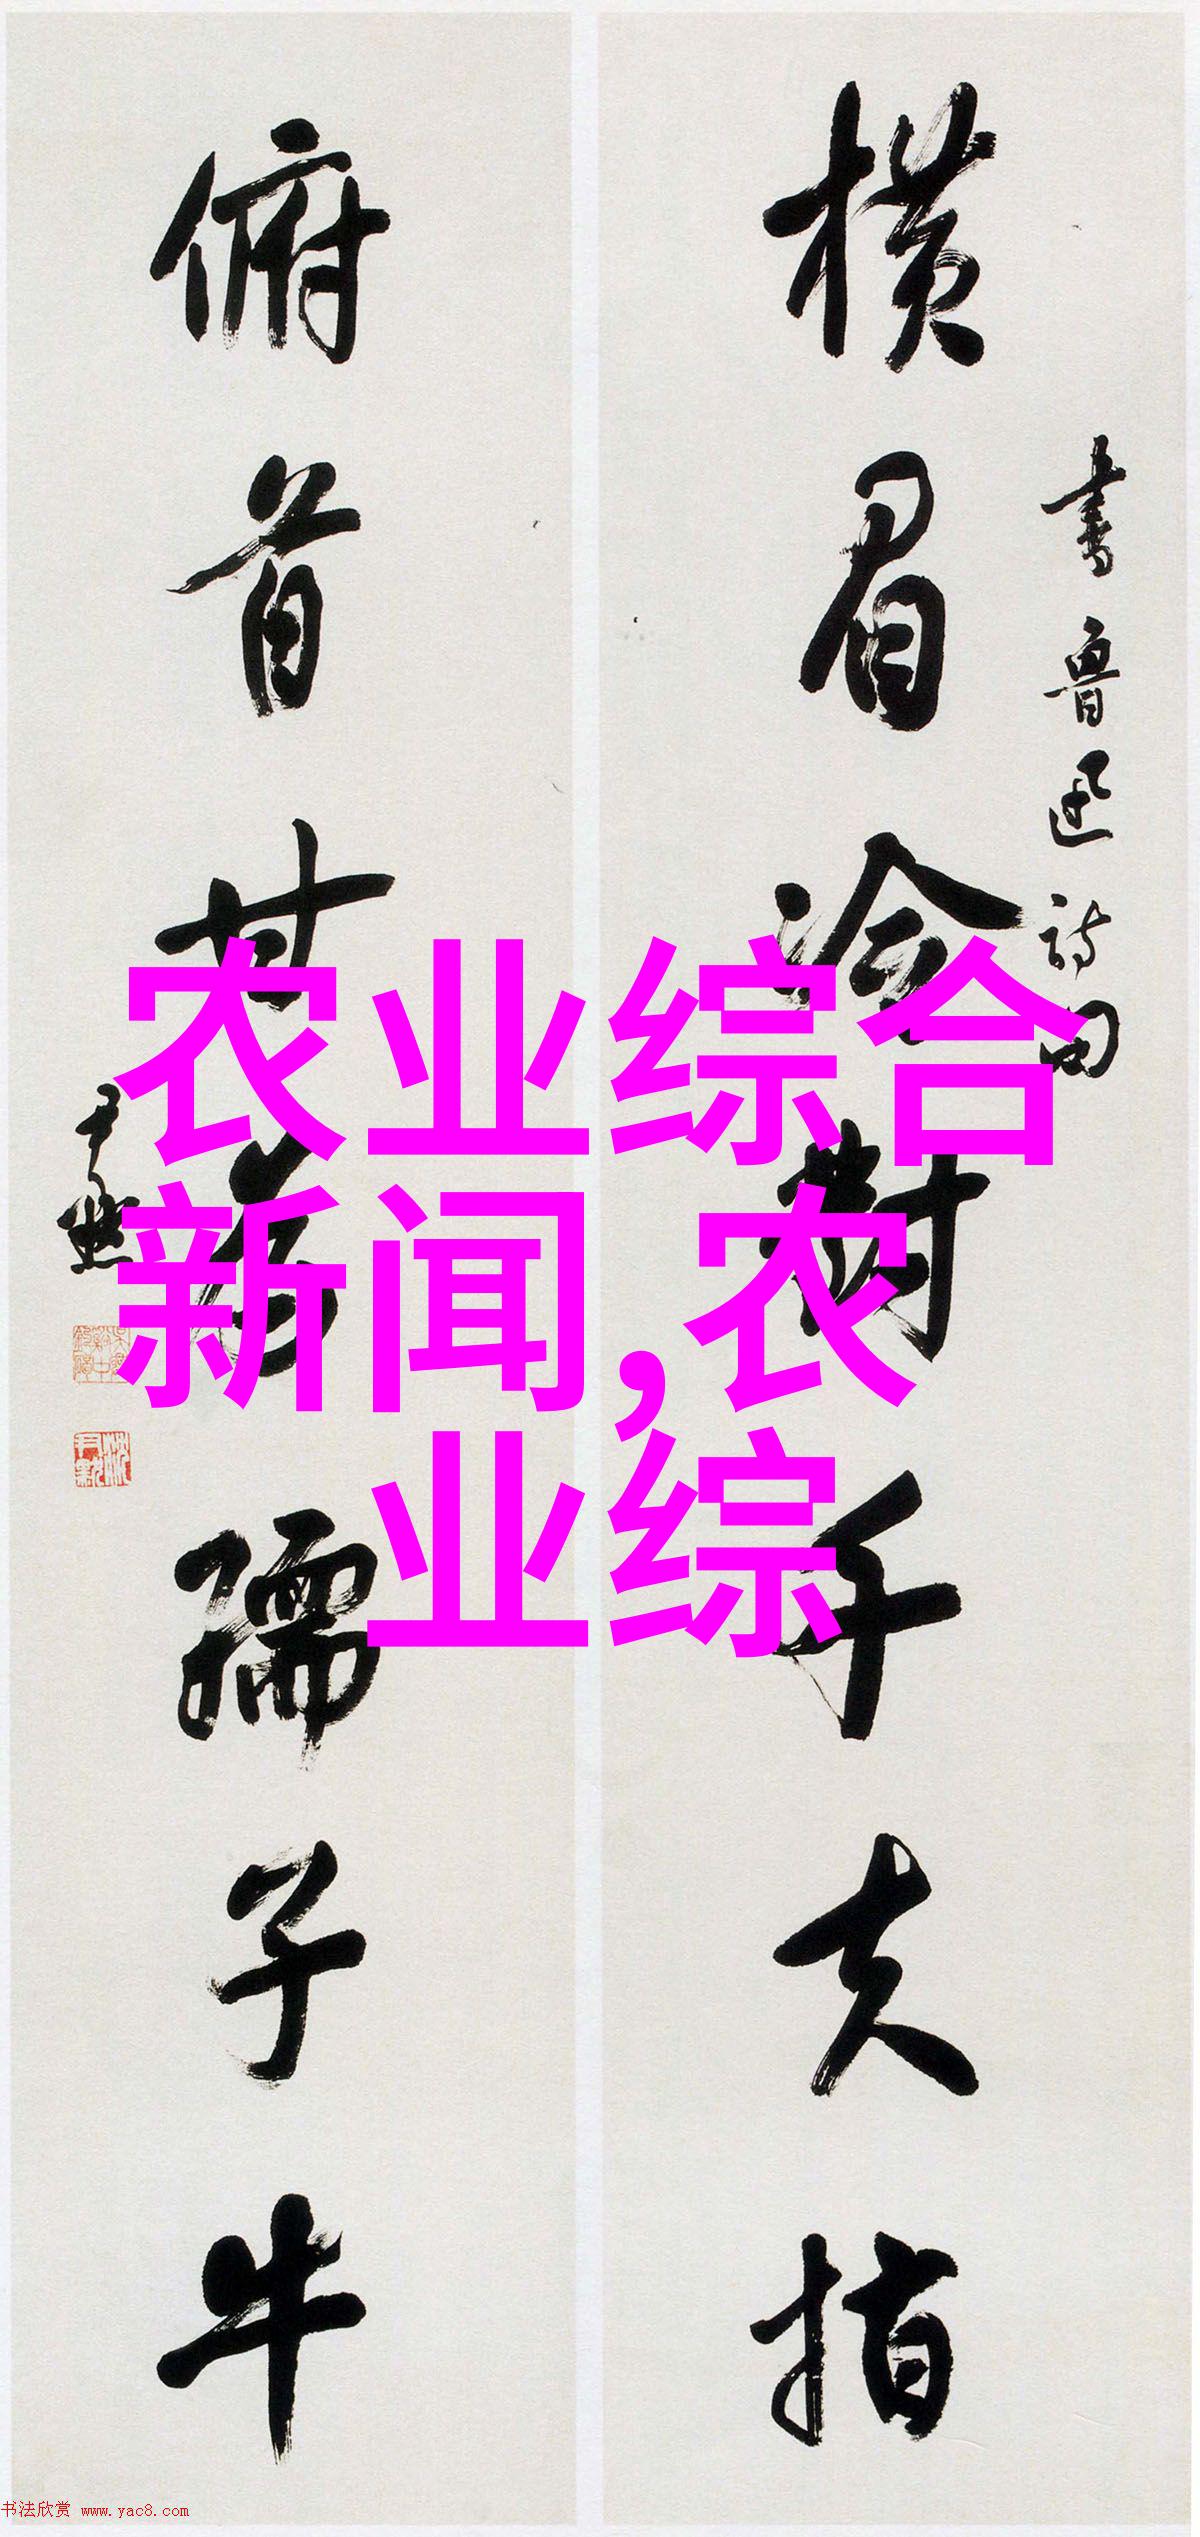 横眉冷對千夫指
書魯迅詩句
俯首甘為孺子牛
尹默
农业综合
新闻,农
业综
书法欣赏 www.yac8.com